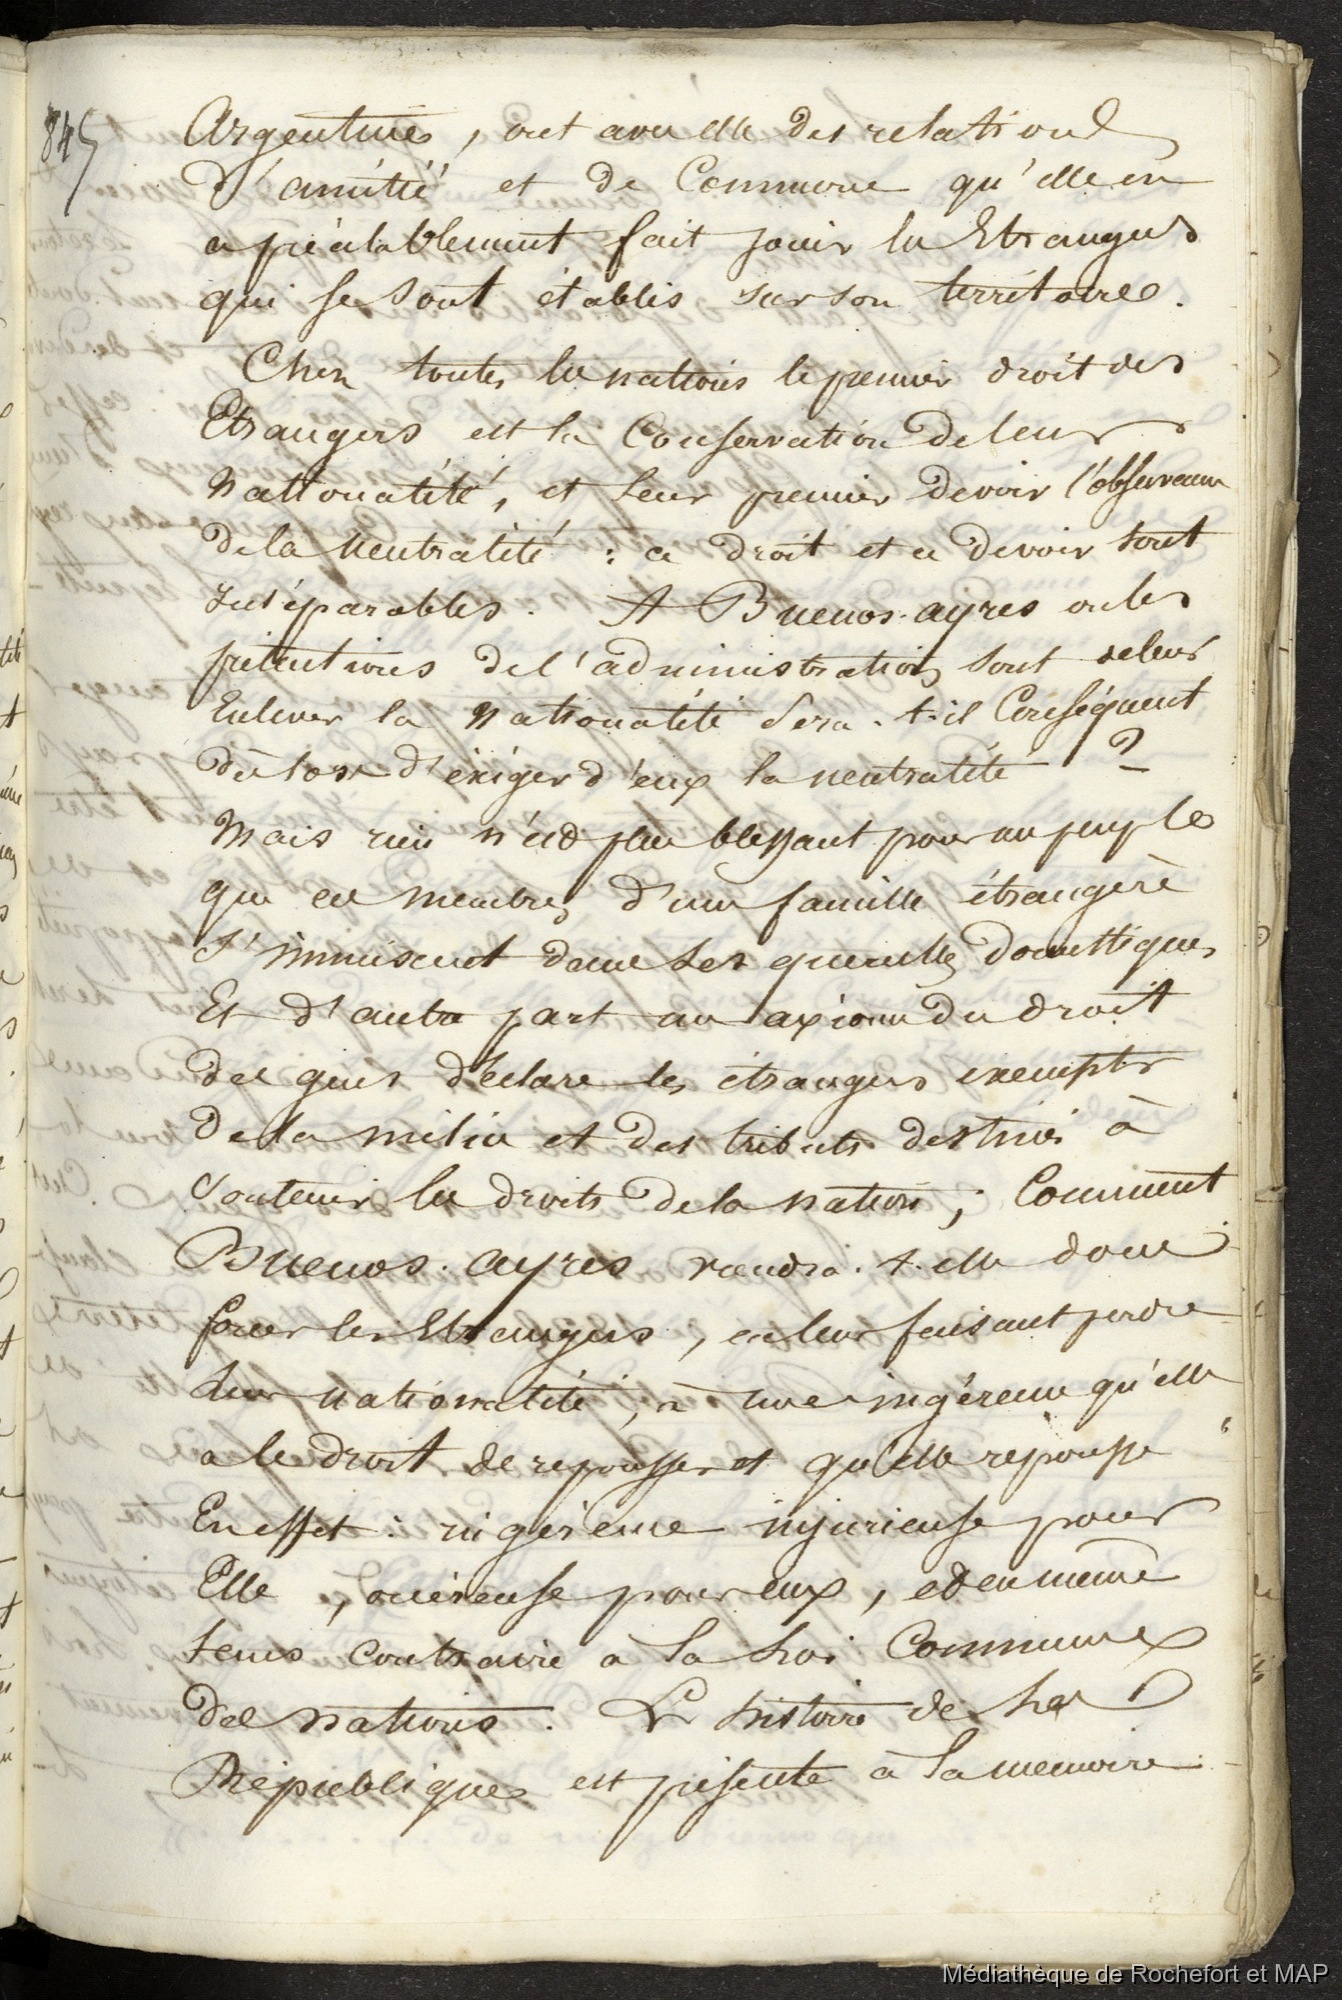 845
Argentine, ont avec elle des relations
d'amitié et de Commerce qu'elle en
a préalablement fait jouir les Etrangers
qui se sont établis sur son territoire.
Chez toutes les nations le premier droit des
Etrangers est la Conservation de leur
nationalité, et leur premier devoir l'observance
de la neutralité : ce droit et ce devoir sont
inséparables. A Buenos-ayres ou les
prétentions de l'administration sont de leur
Enlever la nationalité sera-t-il Conséquent
dès lors d'éxiger d'eux la neutralité ?
Mais rien n'est plus blessant pour un peuple
que ces membres d'une famille étrangère
s'immiscent dans ses querelles domestiques
Et d'autre part un axiome du droit
des gens déclare les étrangers exempts
de la milice et des tributs destinés à
soutenir les droits de la nation ; Comment
Buenos-ayres viendra-t-elle donc
forcer les Etrangers, en leur faisant perdre
leur nationalité, à une ingérence qu'elle
a le droit de repousser et qu'elle repousse
En effet : ingérence injurieuse pour
Elle, onéreuse pour eux, et en même
tems contraire a la loi Commune
des nations. L'histoire de la
République est présente à la mémoire
Médiathèque de Rochefort et MAP